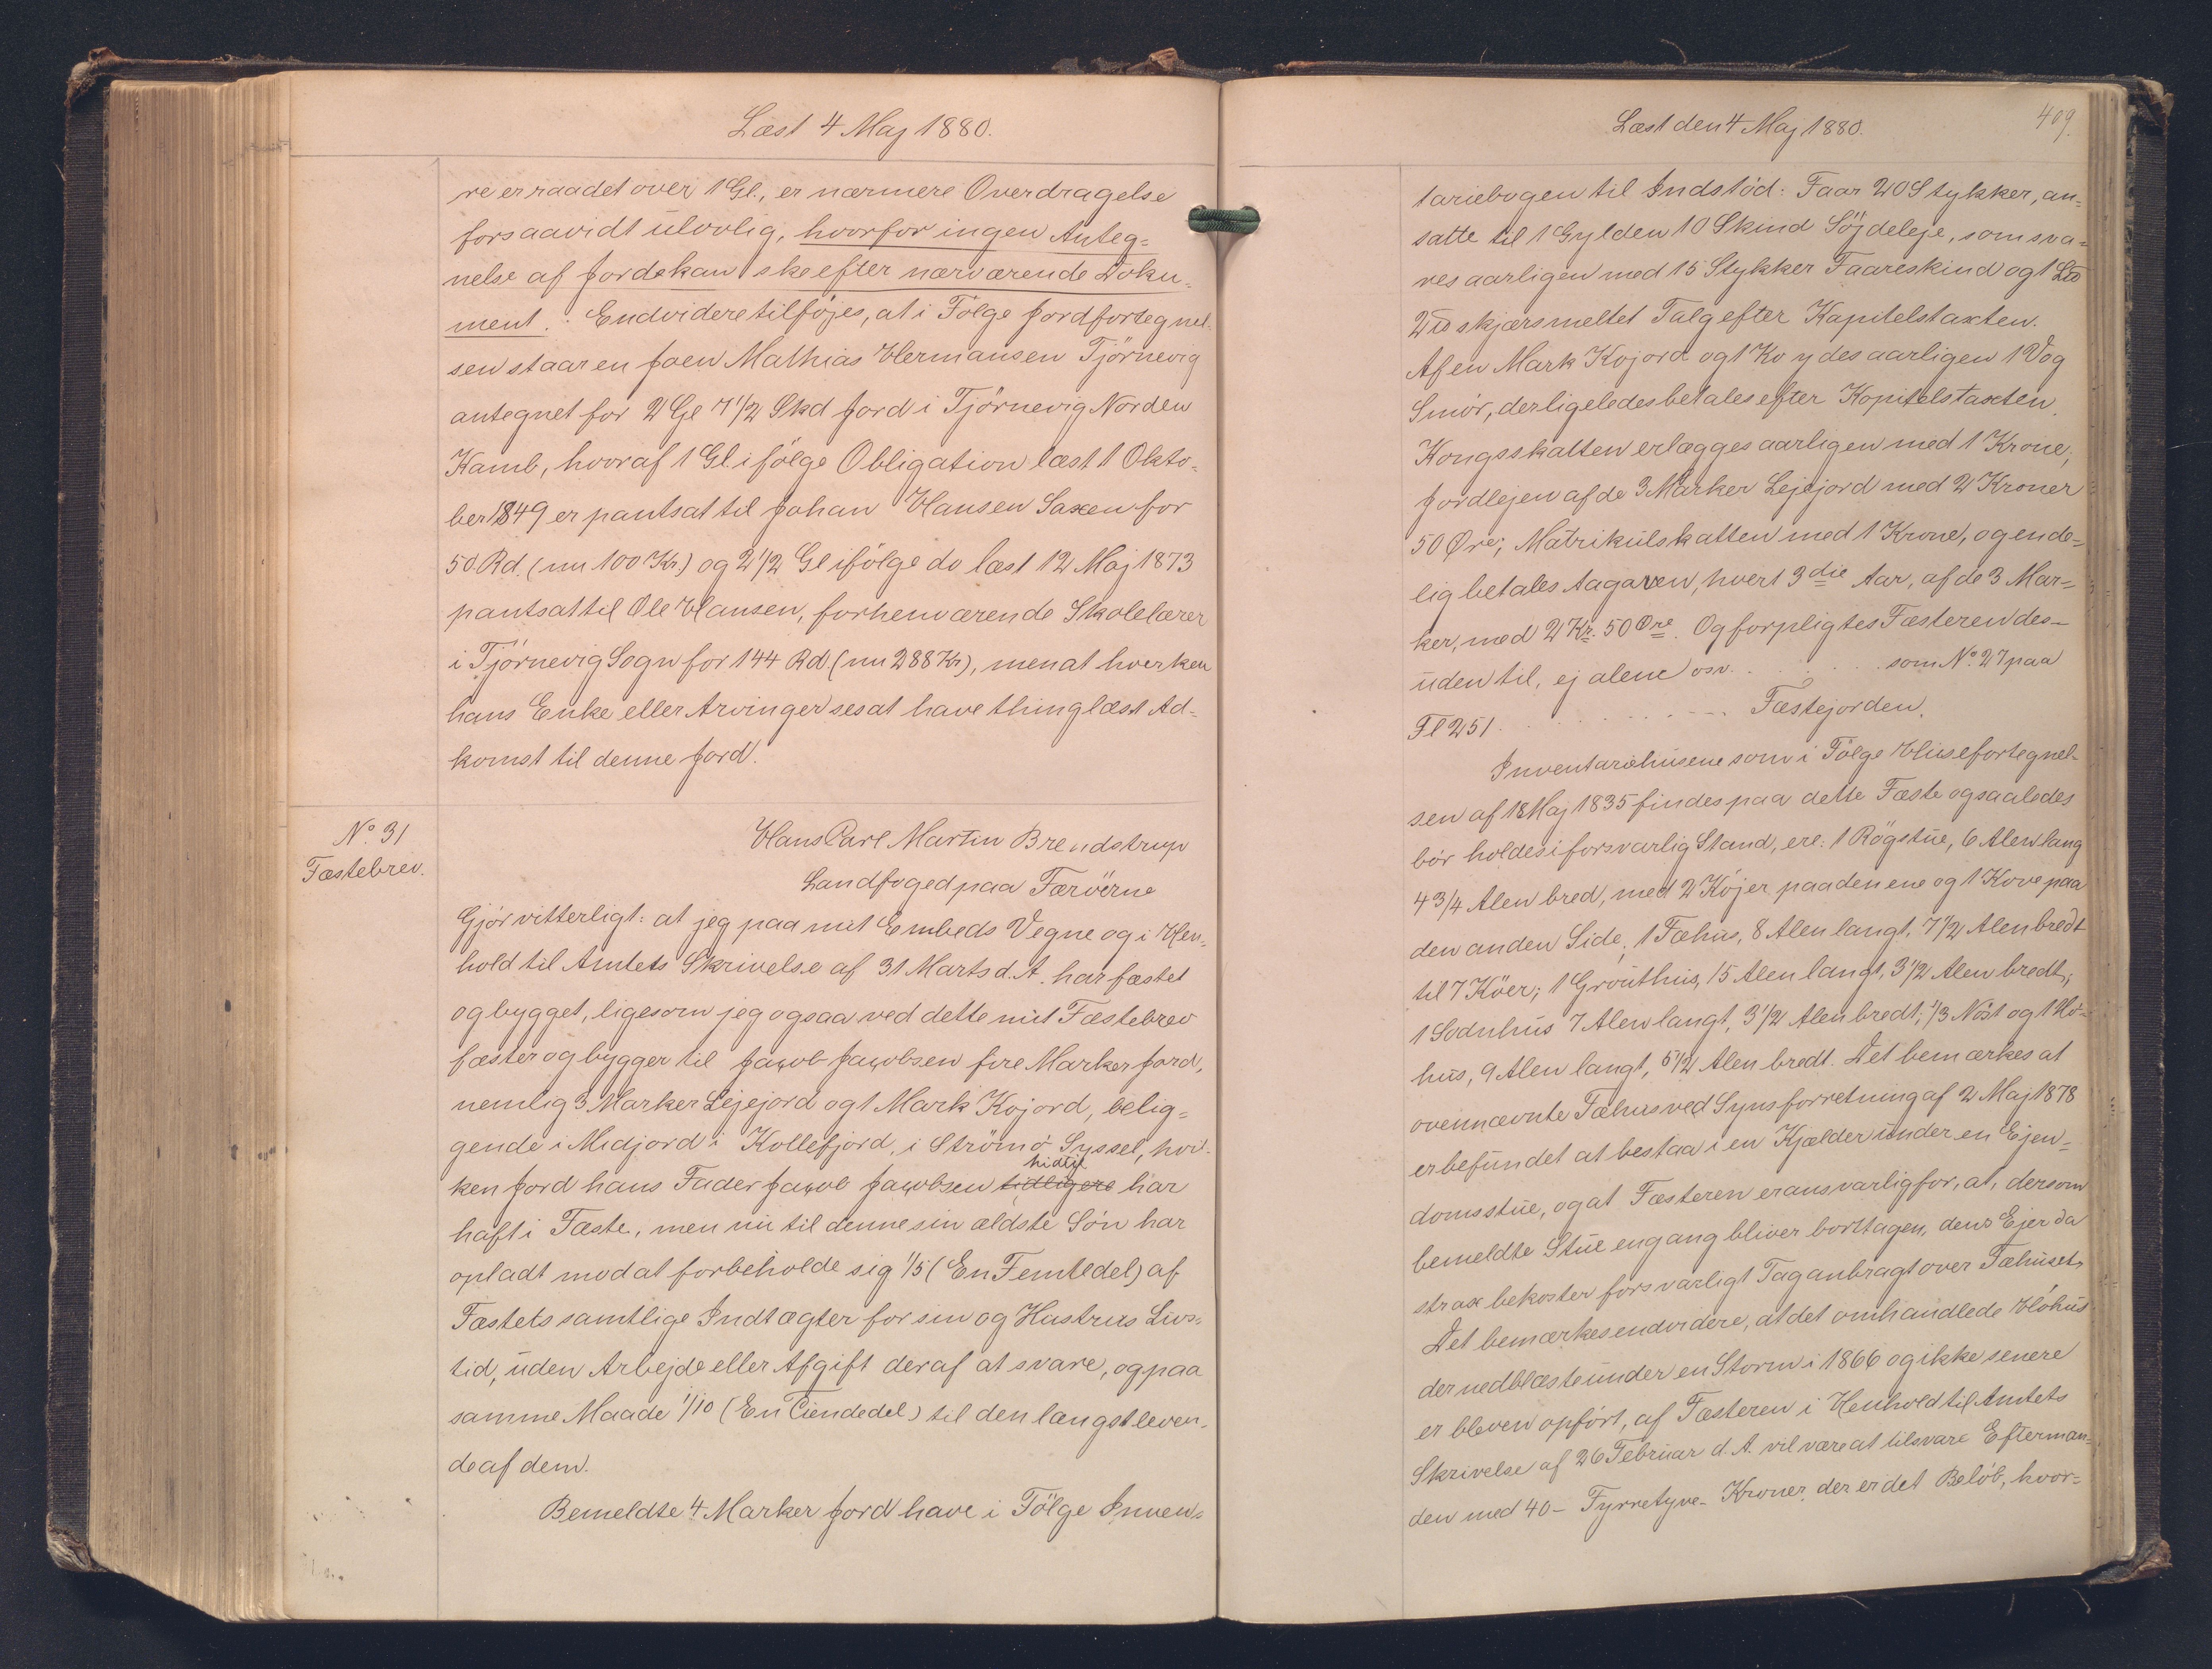 Læst 4 Maj 1880.
re er raadet over 1 Gl., er nærmere Overdragelse
forsaavidt ulovlig, hvorfor ingen Anteg=
nelse af Jorde kan ske efter nærværende Doku=
ment. Endvidere tilföjes, at i Fölge Jordfortegnel-
sen staar en Joen Mathias Hermansen Tjörnevig
antegnet for 2 Gl 7 1/2 Skd Jord i Tjörnevig Norden
Kamb, hvoraf 1 Gl. ifölge Obligation læst 1 Okto=
ber 1849 er pantsat til Johan Hansen Saxen for
50 Rd. (nu 100 Kr.) og 2 1/2 Gl ifölge do læst 12 Maj 1873
pantsat til Ole Hansen, forhenværende Skolelærer
i Tjörnevig Sogn for 144 Rd. (nu 288 Kr), men at hverken
hans Enke eller Arvinger ses at have thinglæst Ad=
komst til denne Jord.
No. 31
Fæstebrev.
Hans Carl Martin Brendstrup
Landfoged paa Færöerne
Gjör vitterligt: at jeg paa mit Embeds Vegne og i Hen=
hold til Amtets Skrivelse af 31 Marts d. A. har fæstet
og bygget, ligesom jeg ogsaa ved dette mit Fæstebrev
fæster og bygger til Jacob Jacobsen fire Marker Jord,
nemlig 3 Marker Lejejord og 1 Mark Kojord, belig=
gende i Midjord i Kollefjord, i Strömö Syssel, hvil-
ken Jord hans Fader Jacob Jacobsen tidligere hidtil har
haft i Fæste, men nu til denne sin ældste Sön har
opladt mod at forbeholde sig 1/5 (En Femtedel) af
Fæstets samtlige Indtægter for sin og Hustrus Livs=
tid, uden Arbejde eller Afgift deraf at svare, og paa
samme Maade 1/10 (En Tiendedel) til den længstleven=
de af dem.
Bemeldte 4 Marker Jord have i Fölge Inven=
Læst den 4 Maj 1880.
409.
tariebogen til Indstöd: Faar 20 Stykker, an=
satte til 1 Gylden 10 Skind Söjdeleje, som sva=
res aarligen med 15 Stykker Faareskind og 1 L℔
2 ℔ skjærsmeltet Talg efter Kapitelstaxten.
Af en Mark Kojord og 1 Ko ydes aarligen 1 Vog
Smör, der ligeledes betales efter Kapitelstaxten.
Kongsskatten erlægges aarligen med 1 Krone;
Jordlejen af de 3 Marker Lejejord med 2 Kroner
50 Øre; Matrikulskatten med 1 Krone, og ende=
lig betales Aagaven, hvert 3die Aar, af de 3 Mar=
ker, med 2 Kr. 50 Øre. Og forpligtes Fæsteren des-
uden til, ej alene osv. . . . . . som No. 27 paa
Fl 251. . . . . . . . . . Fæstejorden.
Inventariehusene som i Fölge Husefortegnel-
sen af 18 Maj 1835 findes paa dette Fæste og saaledes
bör holdes i forsvarlig Stand, ere: 1 Rögstue, 6 Alen lang
4 3/4 Alen bred, med 2 Köjer paa den ene og 1 Kove paa
den anden Side; 1 Fæhus, 8 Alen langt, 7 1/2 Alen bredt
til 7 Köer; 1 Grouthus, 15 Alen langt, 3 1/2 Alen bredt;
1 Sodnhus 7 Alen langt, 3 1/2 Alen bredt; 1/3 Nöst og 1 Hö=
hus, 9 Alen langt, 5 1/2 Alen bredt. Det bemærkes at
ovennævnte Fæhus ved Synsforretning af 2 Maj 1878
er befundet at bestaa i en Kjælder under en Ejen=
domsstue, og at Fæsteren er ansvarlig for, at, dersom
bemeldte Stue engang bliver borttagen, dens Ejer da
strax bekoster forsvarligt Tag anbragt over Fæhuset.
Det bemærkes endvidere, at det omhandlede Höhus
der nedblæste under en Storm i 1866 og ikke senere
er bleven opfört, af Fæsteren i Henhold til Amtets
Skrivelse af 26 Februar d. A. vil være at tilsvare Efterman=
den med 40 - Fyrretyve - Kroner, der er det Belöb, hvor=